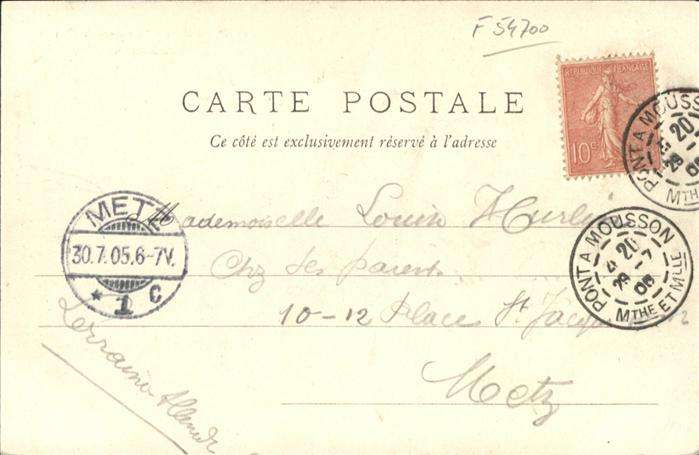 F 54700
REPUBLIQUE FRANÇAISE
10c
CARTE POSTALE
Ce côté est exclusivement réservé à l'adresse
PONT A MOUSSON
20
MTHE
METZ
30.7.05.6-7V.
* 1 C
Mademoiselle Louise
Chz ses parents
10-12 Place St Jacques
Metz
PONT A MOUSSON
20
29 7
05
MTHE ET MLLE
Lorraine